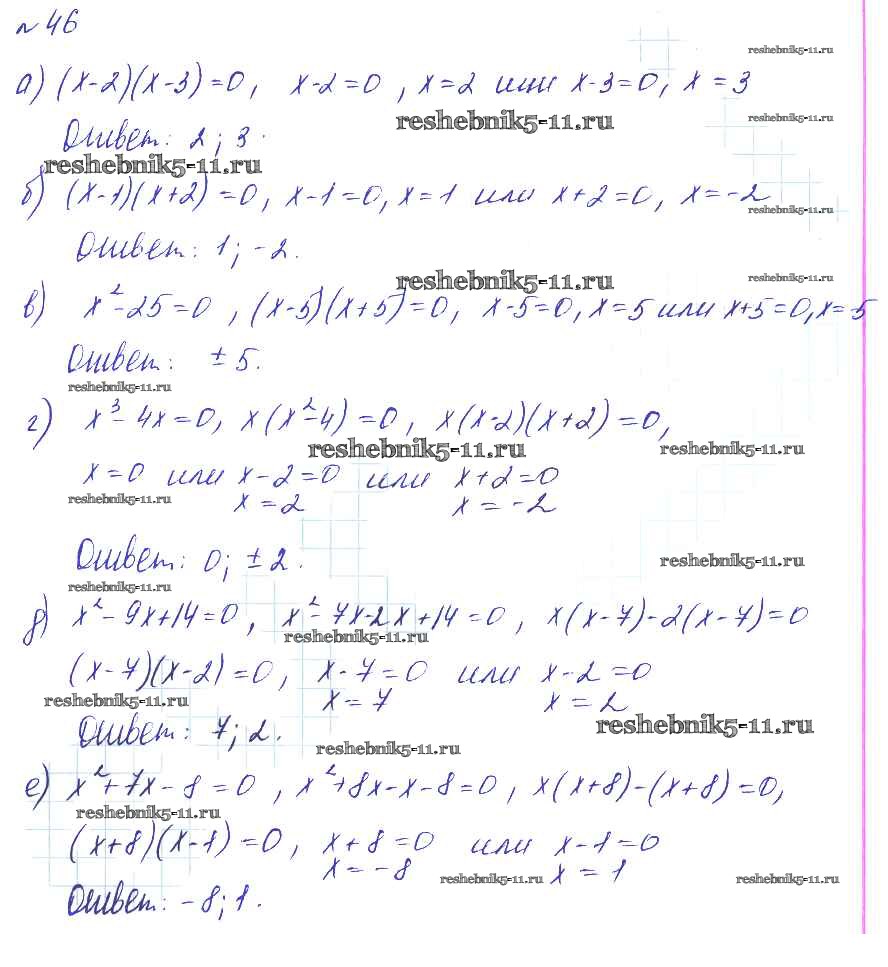 № 46
reshebnik5-11.ru
а) (x-2)(x-3)=0, x-2=0, x=2 или x-3=0, x=3
reshebnik5-11.ru reshebnik5-11.ru
Ответ: 2; 3.
reshebnik5-11.ru
б) (x-1)(x+2)=0, x-1=0, x=1 или x+2=0, x=-2
reshebnik5-11.ru
Ответ: 1; -2.
reshebnik5-11.ru reshebnik5-11.ru
в) x²-25=0, (x-5)(x+5)=0, x-5=0, x=5 или x+5=0, x=-5
Ответ: ±5.
reshebnik5-11.ru
г) x³-4x=0, x(x²-4)=0, x(x-2)(x+2)=0,
reshebnik5-11.ru reshebnik5-11.ru
x=0 или x-2=0 или x+2=0
reshebnik5-11.ru
x=2 x=-2
Ответ: 0; ±2.
reshebnik5-11.ru
reshebnik5-11.ru
д) x²-9x+14=0, x²-7x-2x+14=0, x(x-7)-2(x-7)=0
reshebnik5-11.ru
(x-7)(x-2)=0, x-7=0 или x-2=0
reshebnik5-11.ru
x=7 x=2
reshebnik5-11.ru
Ответ: 7; 2.
reshebnik5-11.ru
е) x²+7x-8=0, x²+8x-x-8=0, x(x+8)-(x+8)=0,
reshebnik5-11.ru
(x+8)(x-1)=0, x+8=0 или x-1=0
x=-8 x=1
reshebnik5-11.ru reshebnik5-11.ru
Ответ: -8; 1.